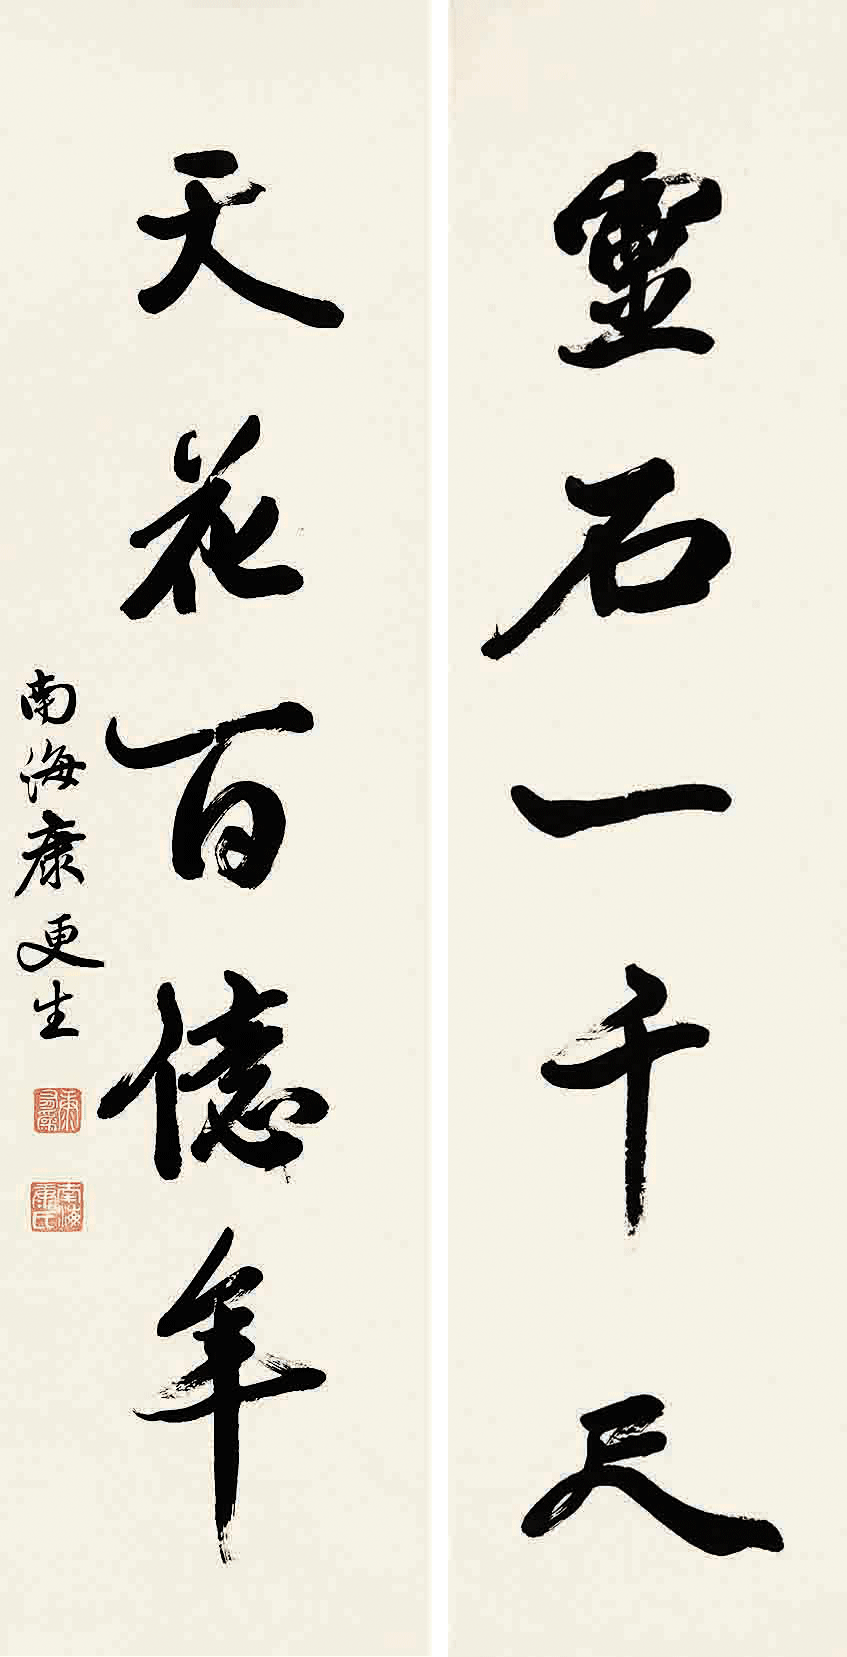 靈石一千尺
天花百億年
南海康更生
康有為
南海康氏